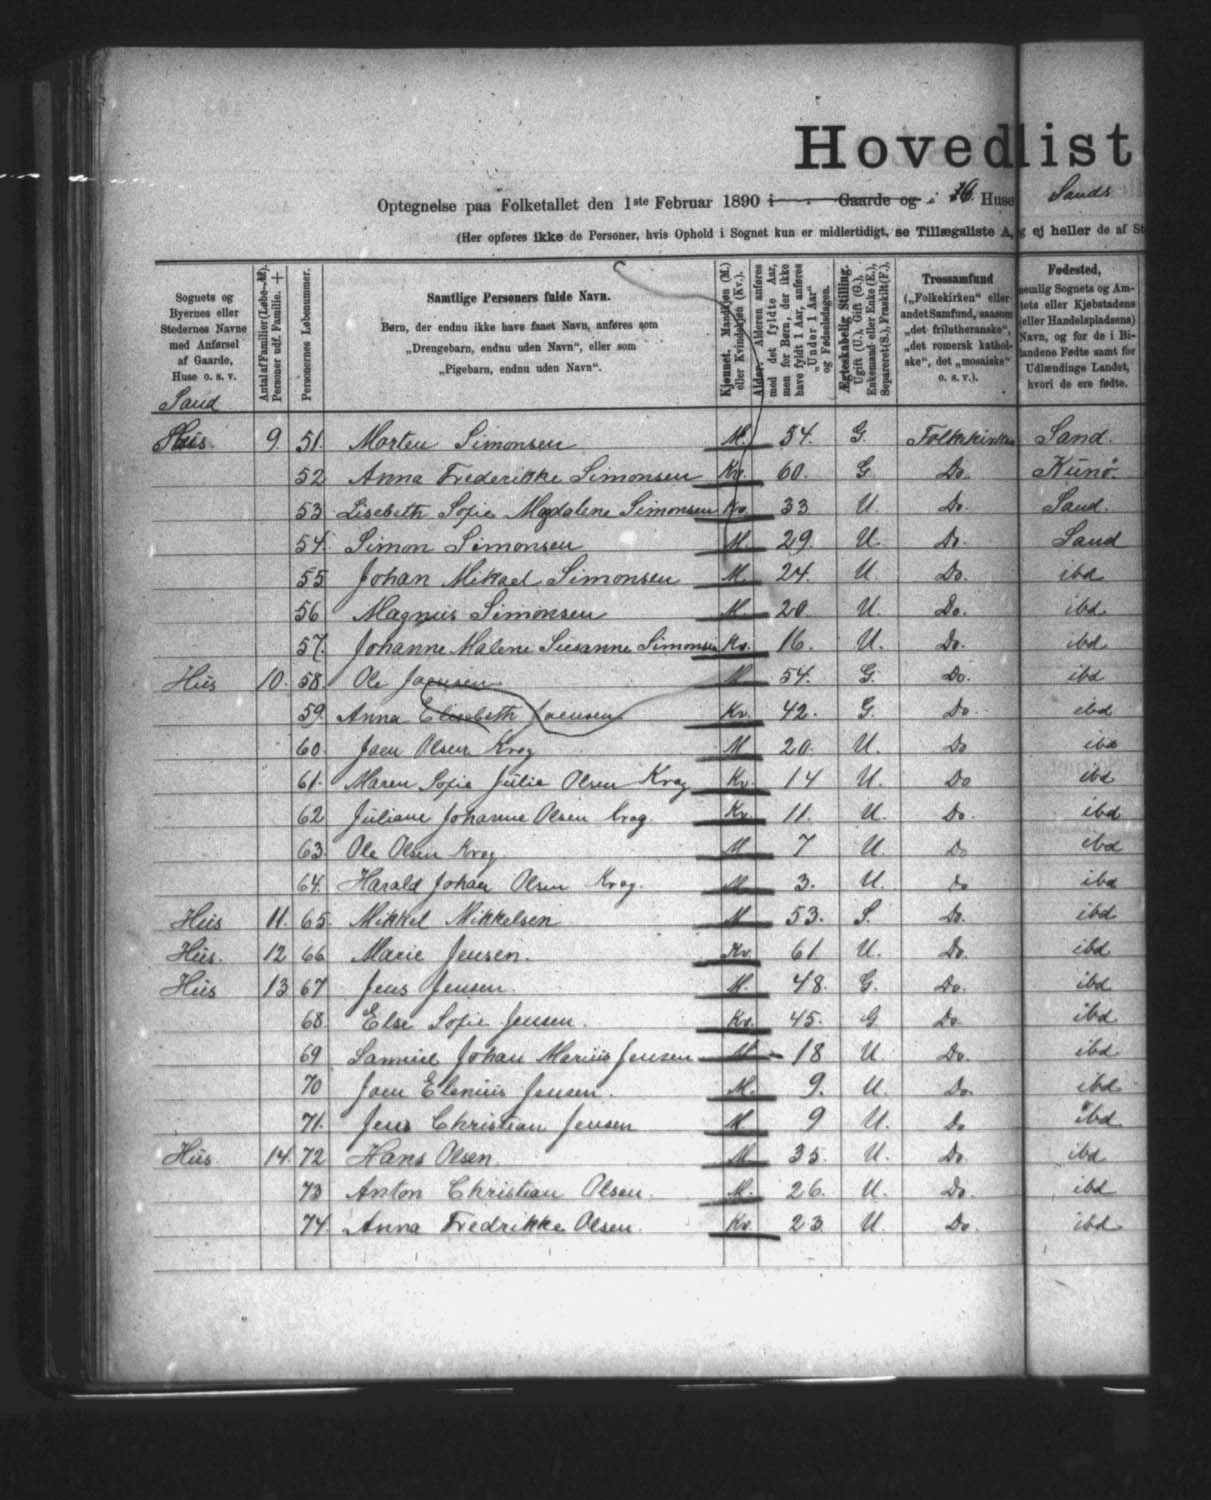 Hovedlist
Optegnelse paa Folketallet den 1ste Februar 1890 i Gaarde og i Huse Sands
(Her opføres ikke de Personer, hvis Ophold i Sognet kun er midlertidigt, se Tillægsliste A, g ej heller de af St
Sognets og Byernes eller Stedernes Navne med Anførsel af Gaarde, Huse o. s. v.
Antal af Familier (Løbe-№). Personer udf. Familie. +
Personernes Løbenummer.
Samtlige Personers fulde Navn.
Børn, der endnu ikke have faaet Navn, anføres som
„Drengebarn, endnu uden Navn“, eller som
„Pigebarn, endnu uden Navn“.
Kjønnet. Mandkjøn (M.) eller Kvindekjøn (Kv.).
Alder. Alderen anføres med det fyldte Aar, men for Børn, der ikke have fyldt 1 Aar, anføres „Under 1 Aar“ og Fødselsdagen.
Ægteskabelig Stilling. Ugift (U.), Gift (G.), Enkemand eller Enke (E.), Separeret (S.), Fraskilt (F.).
Trossamfund („Folkekirken“ eller andet Samfund, saasom „det frilutheranske“, „det romersk kathol- ske“, det „mosaiske“ o. s. v.).
Fødested, nemlig Sognets og Am- tets eller Kjøbstadens (eller Handelspladsens) Navn, og for de i Bi- landene Fødte samt for Udlændinge Landet, hvori de ere fødte.
Sand
Hus 9 51. Morten Simonsen M. 54. G. Folkekirken Sand.
52 Anna Frederikke Simonsen Kv. 60. G Do. Kunø.
53. Lisebeth Sofie Magdalene Simonsen Kv. 33 U. Do. Sand.
54. Simon Simonsen M. 29. U. Do. Sand
55 Johan Mikael Simonsen M. 24. U. Do. ibd
56 Magnus Simonsen M 20 U. Do. ibd.
57. Johanne Malene Susanne Simonsen Kv. 16. U. Do. ibd
Hus 10. 58. Ole Joensen M 54. G. Do. ibd
59. Anna Elisebeth Joensen Kv. 42. G. Do ibd
60. Joen Olsen Krog M 20. U. Do ibd
61. Maren Sofie Julie Olsen Krog Kv. 14 U. Do ibd
62 Juliane Johanne Olsen Krog. Kv. 11. U. Do. ibd
63. Ole Olsen Krog. M 7 U. Do ibd
64. Harald Johan Olsen Krog. M 3. U. Do ibd
Hus 11. 65. Mikkel Mikkelsen M 53. S. Do. ibd
Hus. 12 66 Marie Jensen. Kv. 61 U. Do. ibd
Hus 13 67 Jens Jensen. M. 48. G. Do. ibd
68. Else Sofie Jensen. Kv. 45. G Do. ibd
69 Samuel Johan Marius Jensen M 18 U. Do. ibd
70 Joen Elenius Jensen. M. 9. U. Do. ibd
71. Jens Christian Jensen M. 9 U. Do ibd
Hus. 14. 72 Hans Olsen. M 35. U. Do. ibd
73 Anton Christian Olsen. M. 26. U. Do. ibd
74. Anna Fredrikke Olsen. Kv 23 U. Do. ibd